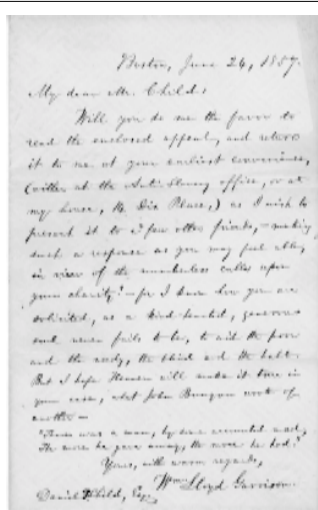 Boston, June 24, 1857.
My dear Mr. Child:
Will you do me the favor to
read the enclosed appeal, and return
it to me at your earliest convenience,
(either at the Anti-Slavery office, or at
my house, 14 Dix Place,) as I wish to
present it to a few other friends, — making
such a response as you may feel able,
in view of the numberless calls upon
your charity? — for I know how you are
solicited, as a kind-hearted, generous
soul never fails to be, to aid the poor
and the needy, the blind and the halt.
But I hope Heaven will make it true in
your case, what John Bunyan wrote of
another —
"There was a man, by some accounted mad,
The more he gave away, the more he had."
Yours, with warm regards,
Wm. Lloyd Garrison.
Daniel F. Child, Esq.